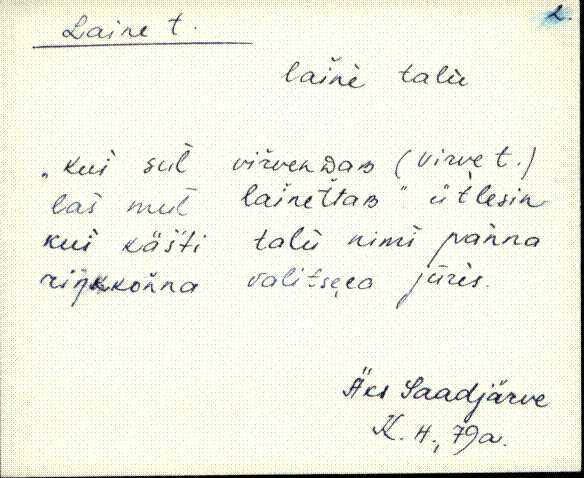 Laine t.
2.
laine talu
„kui sul virvendaʙ (virve t.)
las mul lainettaʙ" ütlesin
kui kästi talu nimi panna
rinkkonna valitseea juris.
Äks Saadjärve
K. H., 79a.